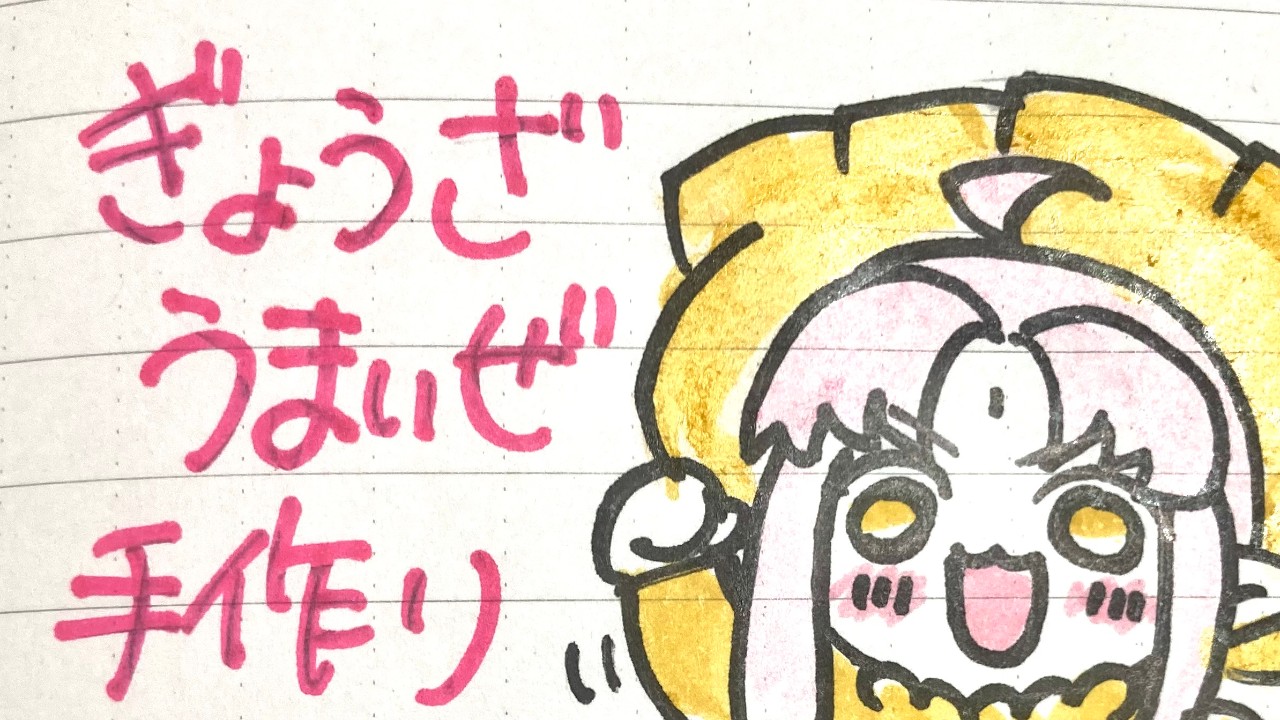 ぎょうざ
うまいぜ
手作り